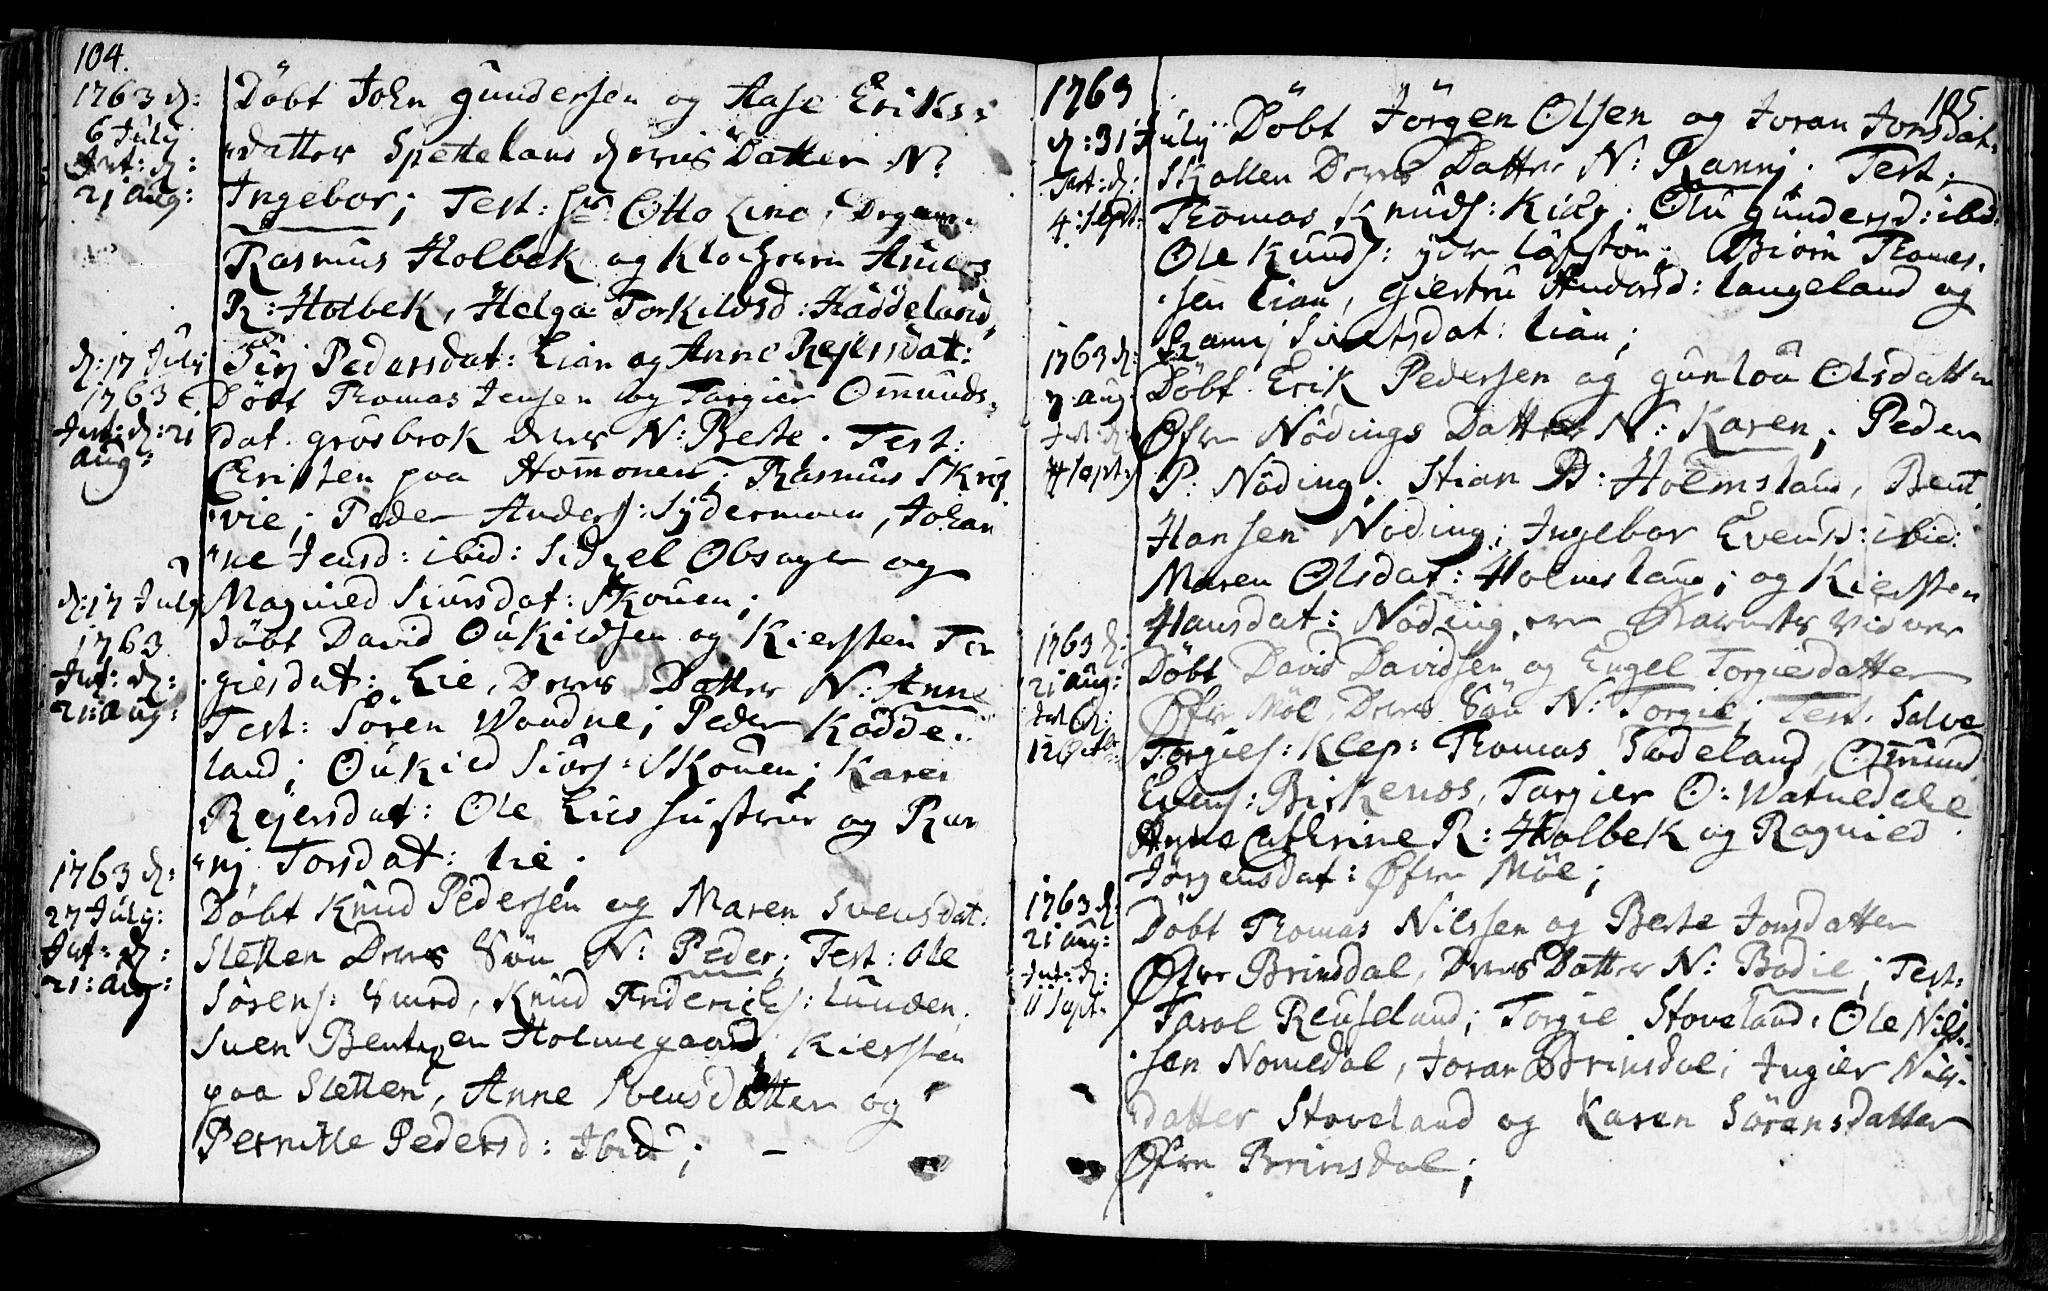 104.
1763 d:
6 July
Int: d:
21 aug:
Döbt John Gundersen og Aase Eriks=
datter Spetteland deres Datter N:
Ingebor; Test: Sr: Otto Lino,
Rasmus Holbek og Anders
R: Holbek, Helga Torkildsd: Haddeland,
d: 17 July
1763
Int: d: 21
aug:
Siri Pedersdat: Lian og Anne Rejersdat:
Döbt Thomas Jensen og Targier Omunds=
dat. grosbrok deres N: Berte. Test:
Cristen paa Hommonen; Rasmus Skrif
vie; Peder Anders: Sydermoen, Johan
ne Jensd: ibid: Sidzel Obsager og
Magnied Siursdat: Skouen;
d: 17 July
1763
Int: d:
21: aug:
Döbt David Oukildsen og Kiersten Tor
giesdat: Lie, Deres Datter N: Anne
Test: Sören Woudne; Peder Kodde=
land; Oukied Siörs: Skouen; Karen
Rejersdat: Ole Lies Hustrue og Ran
nj Torsdat: Lie;
1763 d:
27 July:
Int: d:
21: aug:
Döbt Knud Pedersen og Maren Svensdat:
Sletten Deres Sön N: Peder; Test: Ole
Sörens: Knud Friderichs: Lunden,
Suen Bentzen Holmegaard, Kiersten
paa Sletten, Anne Svensdatter og
Pernille Pedersd: Ibid; –
105
1763
d: 31 July
Int: d:
4: Sept:
Döbt Jörgen Olsen og Joran Jonsdat:
Skollen Deres Datter N: Rannj. Test:
Thomas Knuds: Kile; Olu Gundersd: ibid:
Ole Kunds: Bjorn Thomes=
sen Lian, Giertru Andersd: Langeland og
Rannj Sivertsdat: Lian;
1763 d:
7 aug
Int d:
4 Sept:
Döbt Erik Pedersen og Gunloü Olsdatter
Øfre Nödings Datter N: Karen; Peder
P: Nöding; Stian P: Holmsland, Bent
Hansen Noding; Ingebor Evensd: ibid:
Maren Olsdat: Holmsland; og Kiersten
Hansdat: Noding, ere Barnets vidner
1763 d:
21 aug:
Int d:
12 Octbr:
Döbt David Davidsen og Engel Torgiesdatter
Øfre Möl, Deres Sön N: Torgie; Test. Salve
Torgies: Klep: Thomas Stodeland, Omund
Evens: Birkenes, Targier O: Watnedahl
Anne Cathrine R: Holbek og Ragnied
Jörgensdat: Øfre Möl;
1763 d:
21 aug:
Int: d:
11 Sept.
Döbt Thomas Nilssen og Berte Jonsdatter
Øfre Brinsdal, Deres Datter N: Bodil; Test:
Tarol Reuseland; Torgie Stoveland, Ole Nils=
sen Nomedal, Joran Brinsdal; Ingier Nils=
datter Stoveland og Karen Sörensdatter
Øfre Brinsdal;